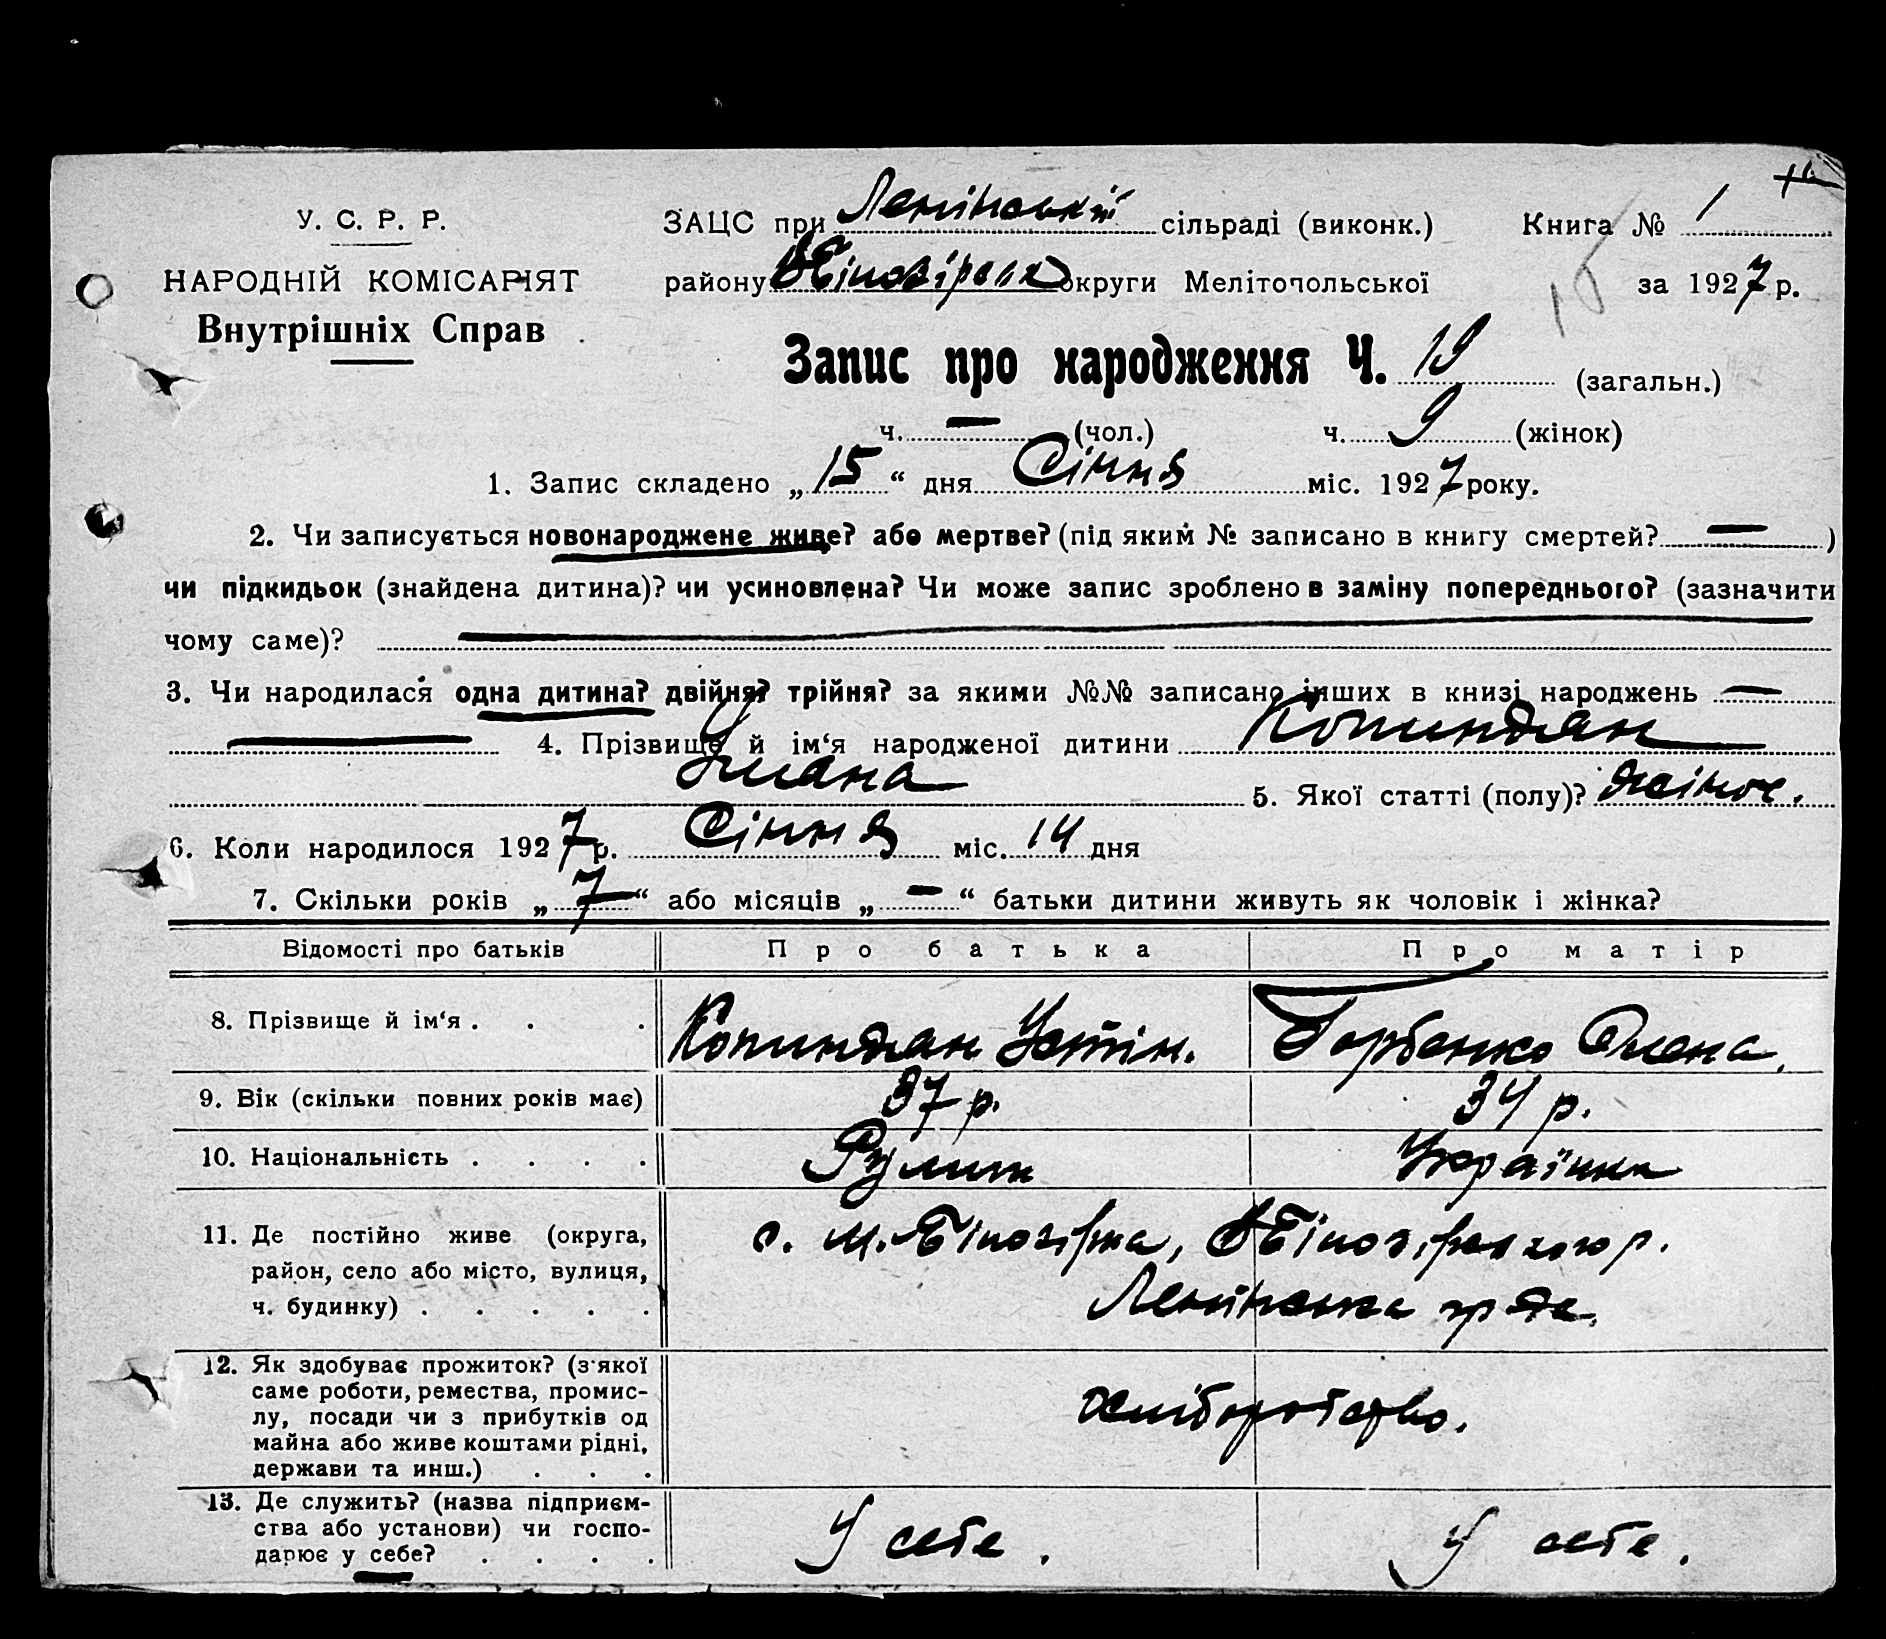 У. С. Р. Р.
НАРОДНІЙ КОМІСАРІЯТ
Внутрішніх Справ
ЗАЦС при Ленінській сільраді (виконк.)
району округи Мелітопольської
Книга № 1
за 1927 р.
16
Запис про народження Ч. 19 (загальн.)
ч. — (чол.) ч. 9 (жінок)
1. Запис складено „15“ дня Січня міс. 1927 року.
2. Чи записується новонароджене живе? або мертве? (під яким № записано в книгу смертей? — )
чи підкидьок (знайдена дитина)? чи усиновлена? Чи може запис зроблено в заміну попереднього? (зазначити
чому саме)?
3. Чи народилася одна дитина? двійня? трійня? за якими №№ записано інших в книзі народжень —
— 4. Прізвище й ім‘я народженої дитини Копиндян
Уляна 5. Якої статті (полу)? жіноч.
6. Коли народилося 1927 р. Січня міс. 14 дня
7. Скільки років „7“ або місяців „—“ батьки дитини живуть як чоловік і жінка?
Відомості про батьків Про батька Про матір
8. Прізвище й ім‘я . . . Копиндян Устін. Горбенко Олена.
9. Вік (скільки повних років має) 37 р. 34 р.
10. Національність . . . . Румин Українка
11. Де постійно живе (округа,
район, село або місто, вулиця,
ч. будинку) . . . . .
с. М. Білозірка, Білозірського р.
Ленінська
12. Як здобуває прожиток? (з'якої
саме роботи, ремества, промис-
лу, посади чи з прибутків од
майна або живе коштами рідні,
держави та инш.) . . .
хліборобство.
13. Де служить? (назва підприєм-
ства або установи) чи госпо-
дарює у себе? . . . .
У себе. У себе.